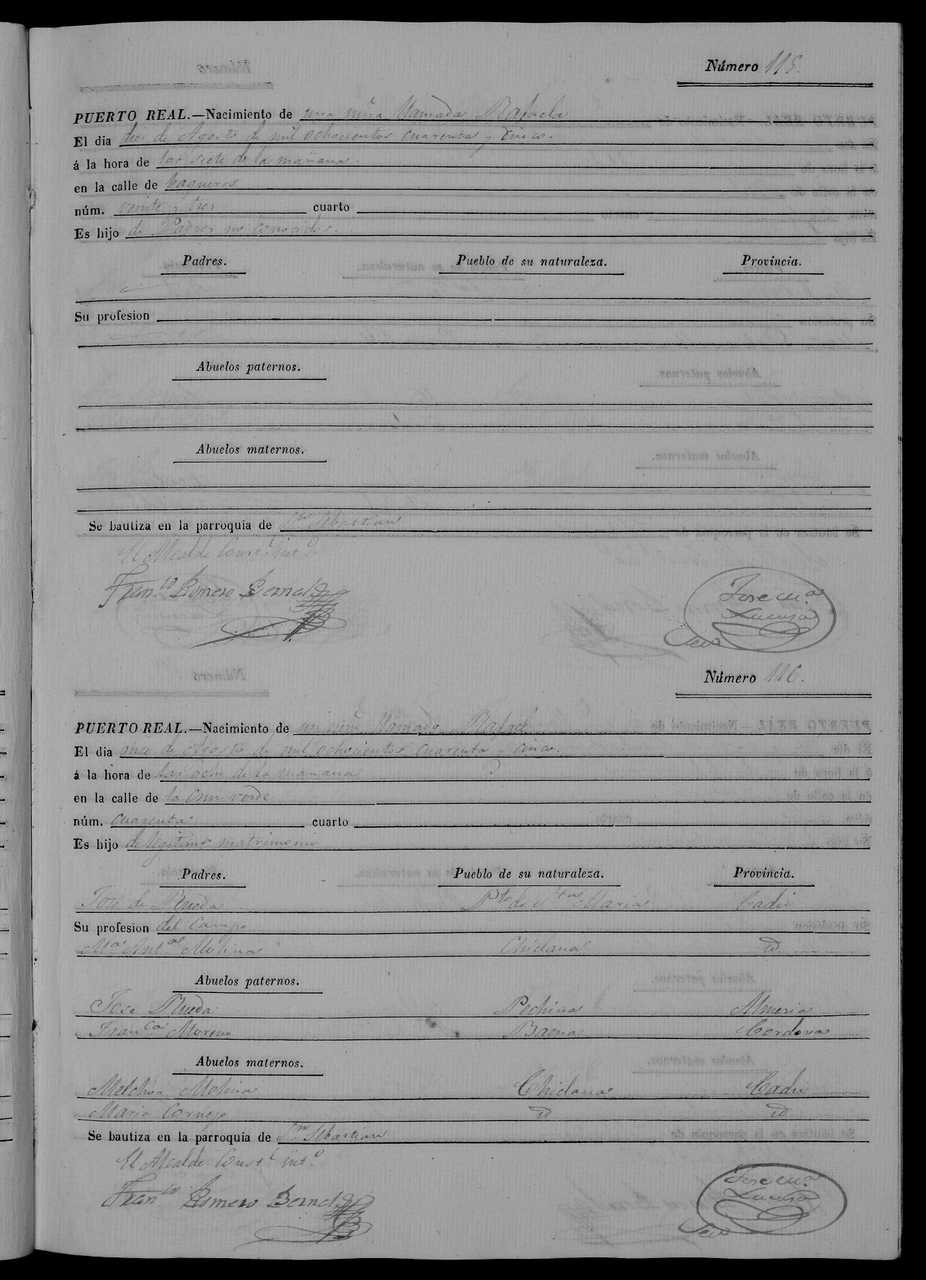 Número 115.
PUERTO REAL.—Nacimiento de una niña llamada Rafaela
El dia de Agosto de mil ochocientos cuarenta y cinco.
á la hora de las siete de la mañana.
en la calle de Vaqueros
núm. veinte y tres cuarto
Es hijo de Padres no conocidos.
Padres. Pueblo de su naturaleza. Provincia.
Su profesion
Abuelos paternos.
Abuelos maternos.
Se bautiza en la parroquia de Sn Sebastian
El Alcalde Const.l int.o
Fran.co Romero Bernal
Jose M.a
Secro
Número 116.
PUERTO REAL.—Nacimiento de un niño llamado Rafael
El dia once de Agosto de mil ochocientos cuarenta y cinco.
á la hora de las ocho de la mañana
en la calle de la Cruz verde
núm. cuarenta cuarto
Es hijo de legitimo matrimonio
Padres. Pueblo de su naturaleza. Provincia.
José de Rueda Pto de Sta Maria Cadiz
Su profesion del Campo
Ma Anta Molina Chiclana id
Abuelos paternos.
Jose Rueda Pechina Almeria
Franca Moreno Baena Cordova
Abuelos maternos.
Melchor Molina Chiclana Cadiz
Maria Cornejo id id
Se bautiza en la parroquia de Sn Sebastian
El Alcalde Const.l int.o
Fran.co Romero Bernal
Jose M.a
Secro